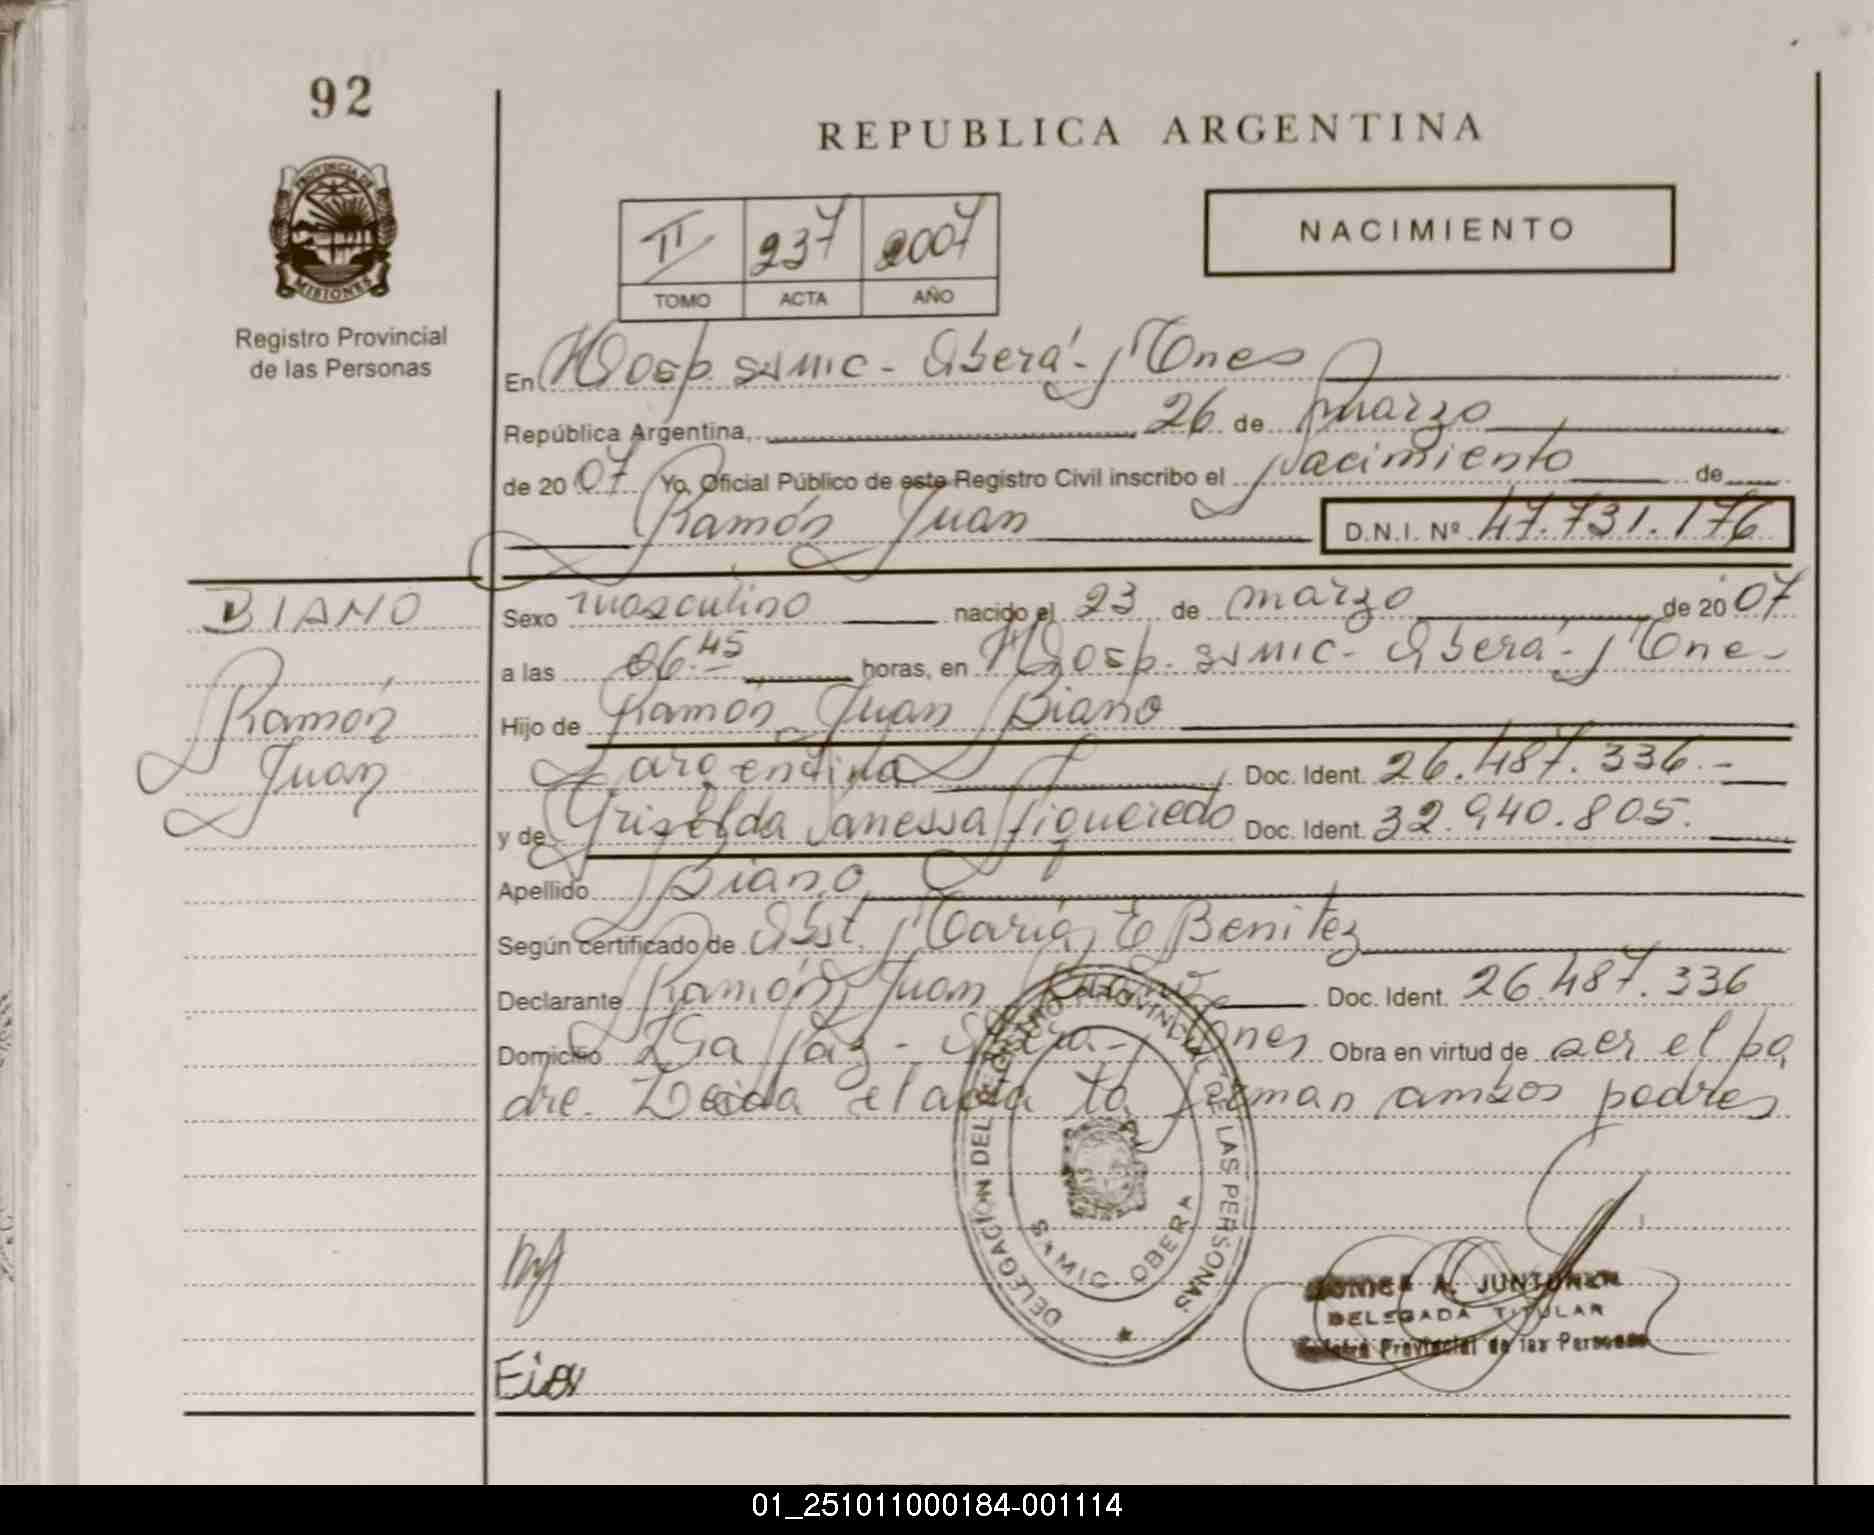 92
REPUBLICA ARGENTINA
PROVINCIA DE
MISIONES
Registro Provincial
de las Personas
NACIMIENTO
II 237 2007
TOMO ACTA AÑO
En Hosp. SAMIC - Oberá - Mnes
República Argentina, 26 de marzo
de 2007 Yo, Oficial Público de este Registro Civil inscribo el nacimiento de
Ramón Juan D.N.I. Nº 47.731.176
BIANO
Ramón
Juan
Sexo masculino nacido el 23 de marzo de 2007
a las 06.45 horas, en Hosp. SAMIC - Oberá - Mnes
Hijo de Ramón Juan Biano
argentina Doc. Ident. 26.487.336.-
y de Griselda Vanessa Figueredo Doc. Ident. 32.940.805.
Apellido Biano
Según certificado de Obst. María E Benitez
Declarante Ramón Juan Biano Doc. Ident. 26.487.336
Domicilio La Paz - Oberá - Mnes Obra en virtud de ser el pa
dre. Leida el acta la firman ambos padres
DELEGACION DEL REGISTRO PROVINCIAL DE LAS PERSONAS
SAMIC OBERA
A. JUNTUNEN
DELEGADA TITULAR
Registro Provincial de las Personas
01_251011000184-001114